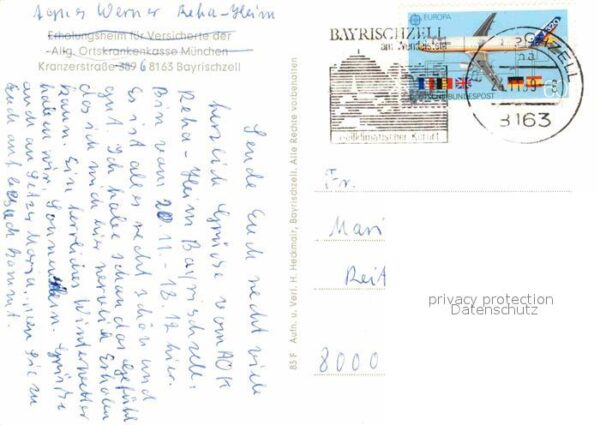 Agnes Werner Reha-Heim
Erholungsheim für Versicherte der
Allg. Ortskrankenkasse München
Kranzerstraße 6 8163 Bayrischzell
Sende Euch recht viele
herzlich Grüße vom AOK
Reha-Heim Bayrischzell.
Bin vom 20.11.-18.12 hier.
Es ist alles recht schön und
gut. Ich habe schon das Gefühl
das ich mich hier nervlich Erholen
kann. Ein herrliches Winterwetter
haben wir. Sonnenschein. Grüße
an
Euch auf besuch kommt.
85 F Aufn. u. Verl. H. Heckmair, Bayrischzell. Alle Rechte vorbehalten
BAYRISCHZELL
am Wendelstein
heilklimatischer Kurort
EUROPA
A320
DEUTSCHE BUNDESPOST
BAYRISCHZELL
8163
Fr.
Mari
Reit
8000
privacy protection
Datenschutz